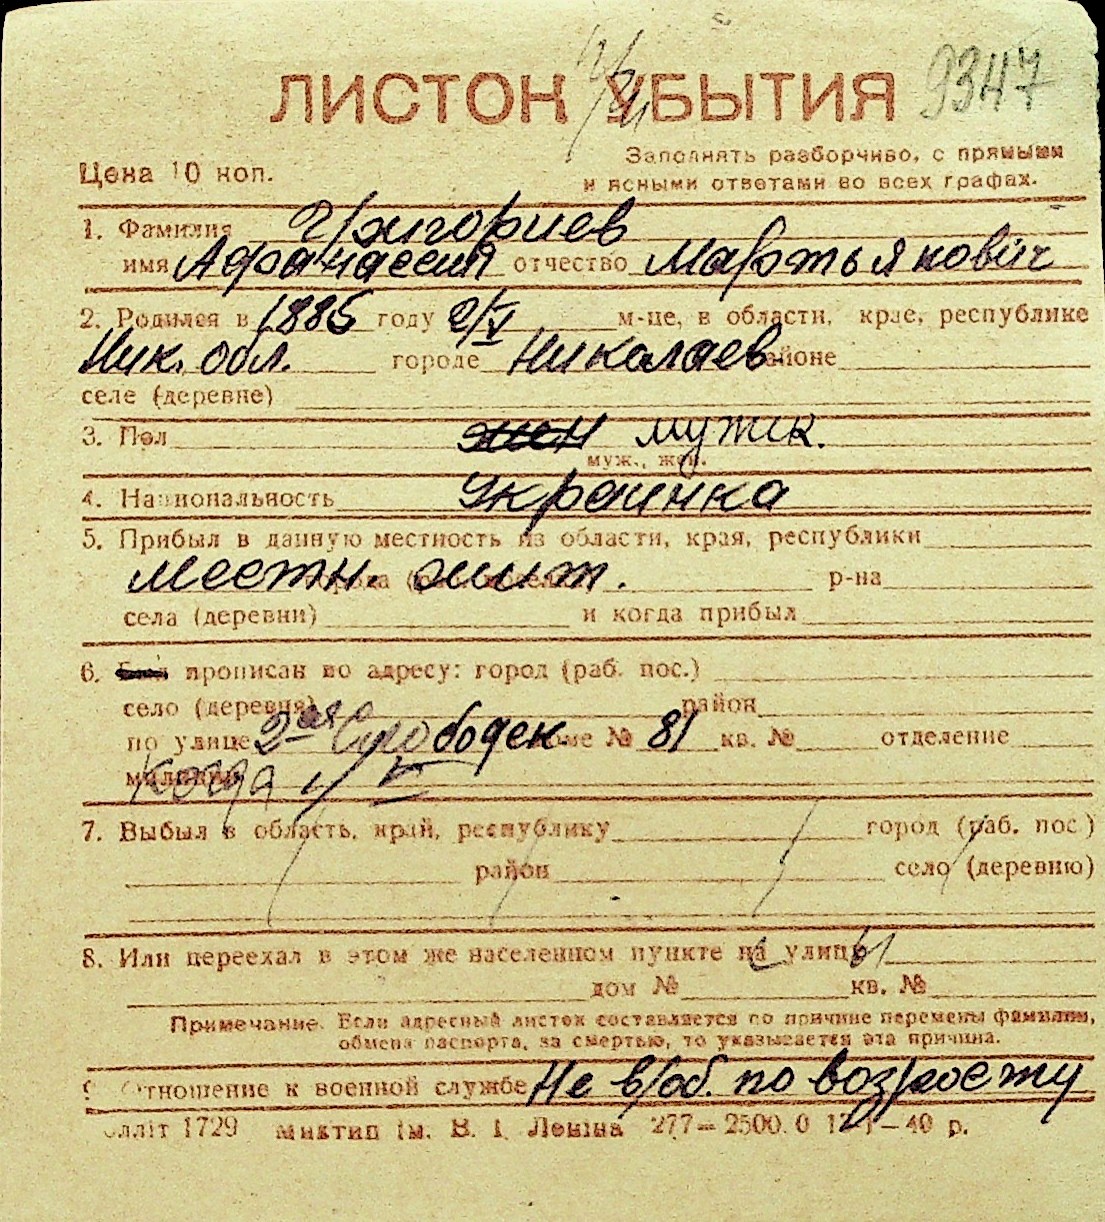 ЛИСТОК УБЫТИЯ 9347
Цена 10 коп.
Заполнять разборчиво, с прямыми
и ясными ответами во всех графах.
1. Фамилия Григориев
имя Афанассий отчество Мартьякович
2. Родился в 1885 году 2/V м-це, в области, крае, республике
Ник. обл. городе Николаев районе
селе (деревне)
3. Пол жен мужск.
муж., жен.
4. Национальность Украинка
5. Прибыл в данную местность из области, края, республики
местн. жит. р-на
села (деревни) и когда прибыл
6. прописан по адресу: город (раб. пос.)
село (деревня) район
по улице 2-ая Слободск. доме № 81 кв. № отделение
милиции когда
7. Выбыл в область, край, республику город (раб. пос)
район село (деревню)
8. Или переехал в этом же населенном пункте на улицу
дом № кв. №
Примечание. Если адресный листок составляется по причине перемены фамилии,
обмена паспорта, за смертью, то указывается эта причина.
9 Отношение к военной службе Не в/об. по возрасту
1729 ім. В. І. Леніна 277—2500.0 40 р.